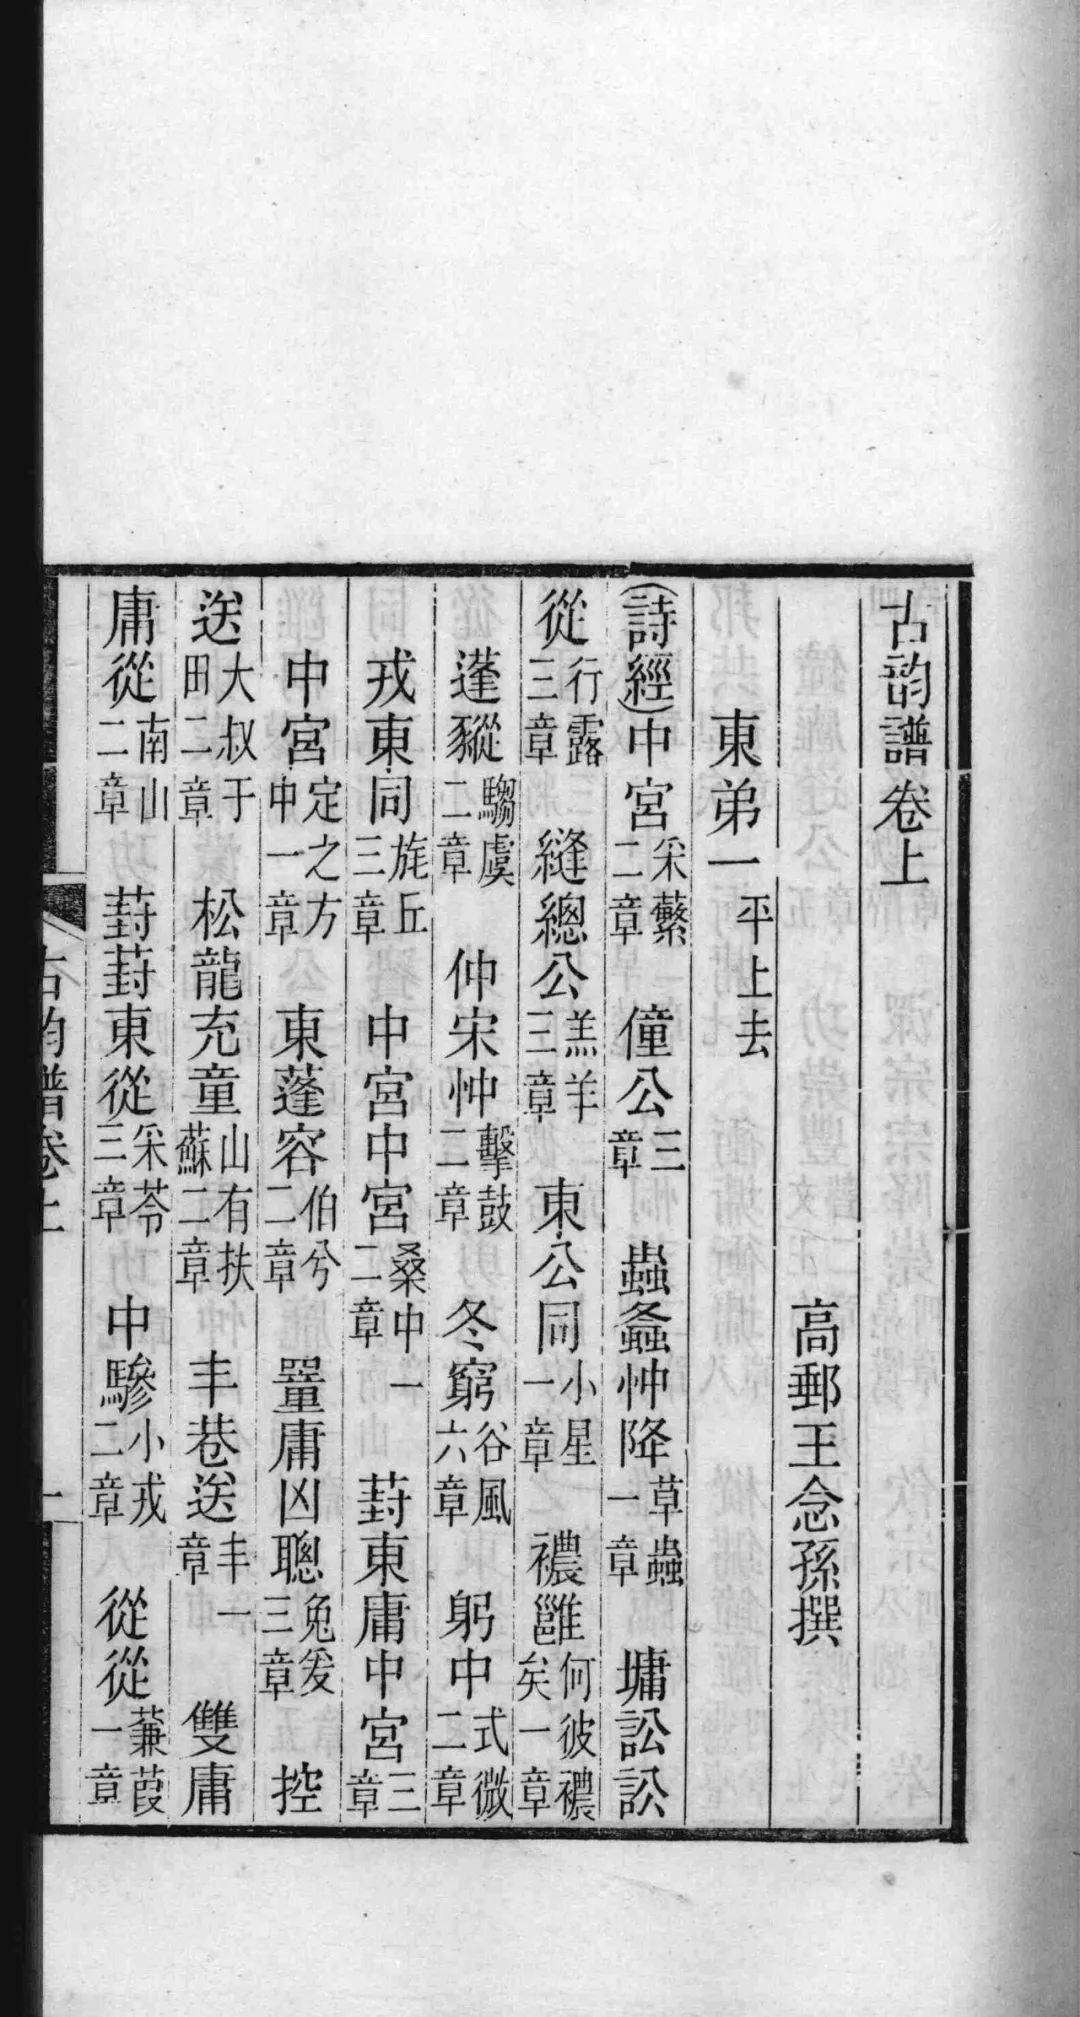 古韵譜卷上
高郵王念孫撰
東弟一平上去
(詩經)中宮采蘩二章 僮公三章 蟲螽忡降草蟲一章 墉訟訟
從行露三章 縫總公羔羊三章 東公同小星一章 襛雝何彼襛矣一章
蓬豵騶虞二章 仲宋忡擊鼓二章 冬窮谷風六章 躬中式微二章
戎東同旄丘三章 中宮中宮桑中一二章 葑東庸中宮三章
中宮定之方中一章 東蓬容伯兮二章 罿庸凶聰兔爰三章 控
送大叔于田二章 松龍充童山有扶蘇二章 丰巷送丰一章 雙庸
庸從南山二章 葑葑東從采苓三章 中驂小戎二章 從從蒹葭一章
古韵譜卷上 一